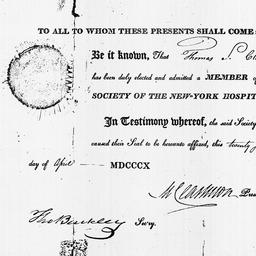 TO ALL TO WHOM THESE PRESENTS SHALL COME
Be it known, That Thomas S. Cl
has been duly elected and admitted a MEMBER
SOCIETY OF THE NEW-YORK HOSPIT
In Testimony whereof, the said Society
caused their Seal to be hereunto affixed, this twenty
day of April MDCCCX
Pres
Tho Buckley Secry.